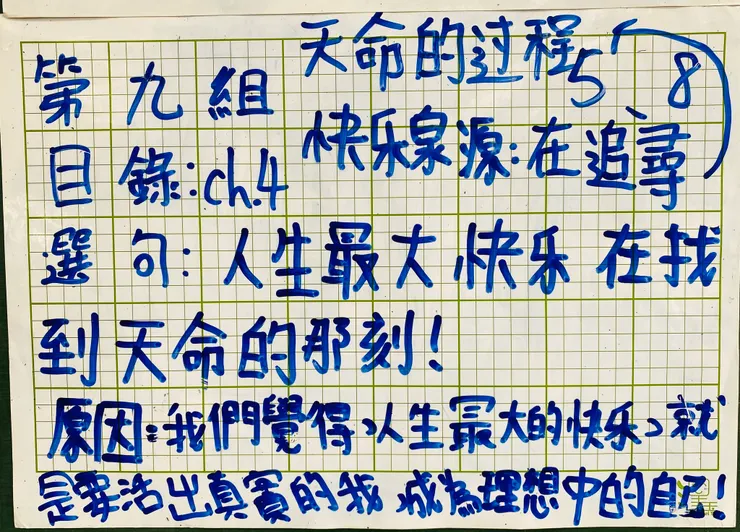 天命的过程 5 8
第九組
快乐泉源:在追尋、
目錄:ch.4
選句:人生最大快乐在找
到天命的那刻!
原因:我們覺得,人生最大的快乐,就
是要活出真實的我 成為理想中的自己!